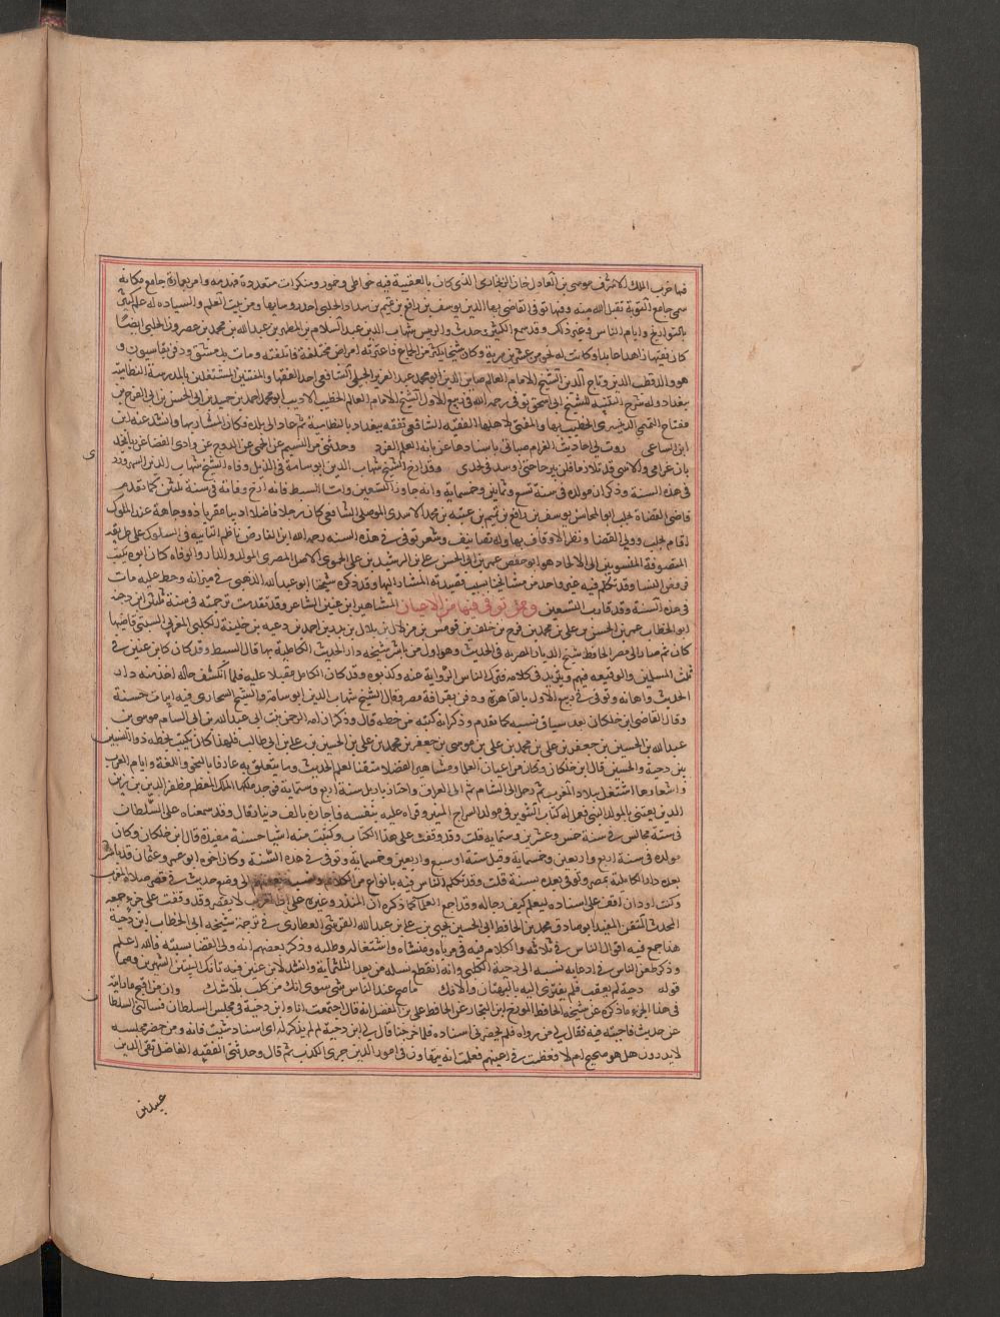 فيها خرب الملك الاشرف موسى بن العادل خان الزنجارى الذى كان بالعقيبة فيه خواطى وخمور ومنكرات متعددة فهدمه وامر بعمارة جامع مكانه
سمى جامع التوبة تقبل الله منه وفيها توفى القاضى بهاء الدين يوسف بن رافع بن تميم بن شداد الحلبى احد رؤسايها ومن بيت العلم والسياده له علم
بالتواريخ وايام الناس وغير ذلك وقد سمع الكثير وحدث والرئيس شهاب الدين عبد السلام بن المطهر بن عبد الله بن محمد بن عصرون الحلبى ايضا
كان فقيها زاهدا عابدا وكانت له نحو من عشرين سرية وكان شيخا يكثر من الجماع فاعترته امراض مختلفة فاتلفته ومات بدمشق ودفن بقاسيون و
هو والد قطب الدين وتاج الدين الشيخ الامام العالم صاين الدين ابو محمد عبد العزيز الجيلى الشافعى احد الفقها والمفتين المشتغلين بالمدرسة النظامية
ببغداد وله شرح التنبيه للشيخ ابى اسحق توفى رحمه الله فى ربيع الاول الشيخ الامام العالم الخطيب الاديب ابو محمد احمد بن حميد بن ابى الحسن بن ابى الفرج بن
مفتاح التميمى الخطيب بها والمفتى لاهلها الفقيه الشافعى تفقه ببغداد بالنظامية ثم عاد الى بلده فكان المشار بها وانشد عنه ابن
ابن الساعى روت لى احاديث الغرام صبابتى باسنادها عن بانه العلم الفرد وحدثنى مر النسيم عن الحمى عن الدوح عن وادى الغضا عن ربا نجد
بان غرامى والاسى قد تلازما فلن يبرحا حتى اوسد فى لحدى وقد ارخ الشيخ شهاب الدين ابو سامة فى الذيل وفاة الشيخ شهاب الدين السهرورد
فى هذه السنة وذكر ان مولده فى سنة تسع وثمانين وخمسماية وانه جاوز التسعين واما السبط فانه ارخ وفاته فى سنة ثلثين كما تقدم
قاضى القضاة بحلب ابو المحاسن يوسف بن رافع بن تميم بن عتبه بن محمد الاسدى الموصلى الشافعى كان رجلا فاضلا اديبا مقريا ذو وجاهة عند الملوك
اقام بحلب وولى القضا ونظر الاوقاف بها وله تصانيف وشعر توفى فى هذه السنه رحمه الله ابن الفارض ناظم التاييه فى السلوك على طريقه
المتصوفة المنسوبين الى الالحاد هو ابو حفص عمر بن ابى الحسن على بن الرشيد بن على الحموى الاصل المصرى المولد والدار والوفاه كان ابوه يكتب
فروض النسا وقد تكلم فيه غير واحد من مشايخنا بسبب قصيدته المشار اليها وقد ذكره شيخنا ابو عبد الله الذهبى فى ميزانه وحط عليه مات
فى هذه السنة وقد قارب التسعين وممن توفى فيها من الاعيان المشاهير ابن عنين الشاعر وقد تقدمت ترجمته فى سنة ثلثين ابن دحية
ابو الخطاب عمر بن الحسن بن على بن محمد بن فرج بن خلف بن قومس بن مزلال بن بلال بن بدر بن احمد بن دعيه بن خليفة الكلبى المغربى السبتى قاضيها
كان ثم صار الى مصر الحافظ شيخ الديار المصريه فى الحديث وهو اول من باشر شيخه دار الحديث الكاملية بها قال السبط وقد كان كابن عنين فى
ثلب المسلمين والوقيعه فيهم ويتزيد فى كلامه فترك الناس الرواية عنه وكذبوه وقد كان الكامل مقبلا عليه فلما انكشف حاله اخذ منه دار
الحديث واهانه وتوفى فى ربيع الاول بالقاهرة ودفن بقرافة مصر وقال الشيخ شهاب الدين ابو سامة والشيخ السخاوى فيه ابيات حسنة
وقال القاضى ابن خلكان بعد سياق نسبه كما تقدم وذكر انه كتبه من خطه قال وذكر ان امه امة الرحمن بنت ابى عبد الله بن ابى البسام موسى بن
عبد الله بن الحسين بن جعفر بن على بن محمد بن على بن موسى بن جعفر بن محمد بن على بن الحسين بن على بن ابى طالب فلهذا كان يكتب بخطه ذو النسبين
بين دحية والحسين قال ابن خلكان وكان من اعيان العلما ومشاهير الفضلا متقنا لعلم الحديث وما يتعلق به عارفا بالنحو واللغة وايام العرب
واشعارها اشتغل ببلاد المغرب ثم رحل الى الشام ثم الى العراق واجتاز باربل سنة اربع وستماية فوجد ملكها الملك المعظم مظفر الدين بن زين
الدين يعتنى بالمولد النبى فعمل له كتاب التنوير فى مولد السراج المنير وقراه عليه بنفسه فاجازه بالف دينار قال وقد سمعناه على السلطان
فى ستة مجالس فى سنة خمس وعشرين وستمايه قلت وقد وقفت على هذا الكتاب وكتبت منه اشيا حسنة مفيدة قال ابن خلكان وكان
مولده فى سنة اربع واربعين وخمسماية وقيل ستة او سبع واربعين وخمسماية وتوفى فى هذه السنة وكان اخوه ابو عمرو عثمان قد باشر
بعده دار الكاملية بمصر وتوفى بعده بسنة قلت وقد تكلم الناس فيه بانواع من الكلام ونسبه بعضهم الى وضع حديث فى قصر صلاة المغرب
وكنت اود ان اقف على اسناده لنعلم كيف رجاله وقد اجمع العلما كما ذكره ابن المنذر وغيره على ان المغرب لا يقصر وقد وقفت على جزء جمعه
المحدث المتقن المفيد ابو صادق محمد بن الحافظ ابى الحسين يحيى بن على بن عبد الله القرشى العطار فى ترجمة شيخه ابى الخطاب ابن دحية
هذا جمع فيه اقوال الناس فى ثلاثه والكلام فيه فى مرباه ومنشاه واشتغاله وطلبه وذكر بعضهم انه ولى القضا بسبته فالله اعلم
وذكر طعن الناس فى ادعايه نسبه الى دحية الكلبى وانه انقطع نسله من بعد الثلثماية وانشد لابن عنين فيه تانك البيتين الشهيرين وهما
قوله دحية لم يعقب فلم يعتزى اليه بالبهتان والافك ما صح عند الناس شى سوى انك من كلب بلا شك وان من اقبح ما رايته
فى هذا الجزء ما ذكره عن شيخه الحافظ المورخ ابن النجار عن الحافظ على بن المفضل انه قال اجتمعت انا وابن دحية فى مجلس السلطان فسالنى السلطا
عن حديث فاجبته فيه فقال لى من رواه فلم يحضرنى اسناده فلما خرجنا قال لى ابن دحية لم لم يذكر له اى اسناد شيت فانه ومن حضر مجلسه
لا يدرون هل هو صحيح ام لا فعظمت فى اعينهم فعلمت انه يتهاون فى امور الدين جرى الكذب ثم قال وحدثنى الفقيه الفاضل تقى الدين
عبيد بن